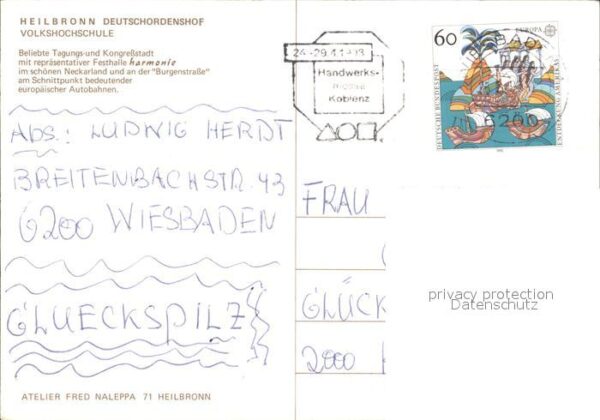 HEILBRONN DEUTSCHORDENSHOF
VOLKSHOCHSCHULE
Beliebte Tagungs-und Kongreßstadt
mit repräsentativer Festhalle harmonie
im schönen Neckarland und an der "Burgenstraße"
am Schnittpunkt bedeutender
europäischer Autobahnen.
Handwerks-
Koblenz
60
EUROPA
DEUTSCHE BUNDESPOST
6200
ABS.: LUDWIG HERDT
BREITENBACHSTR. 43
6200 WIESBADEN
GLUECKSPILZ
FRAU
GLÜCK
2000
privacy protection
Datenschutz
ATELIER FRED NALEPPA 71 HEILBRONN